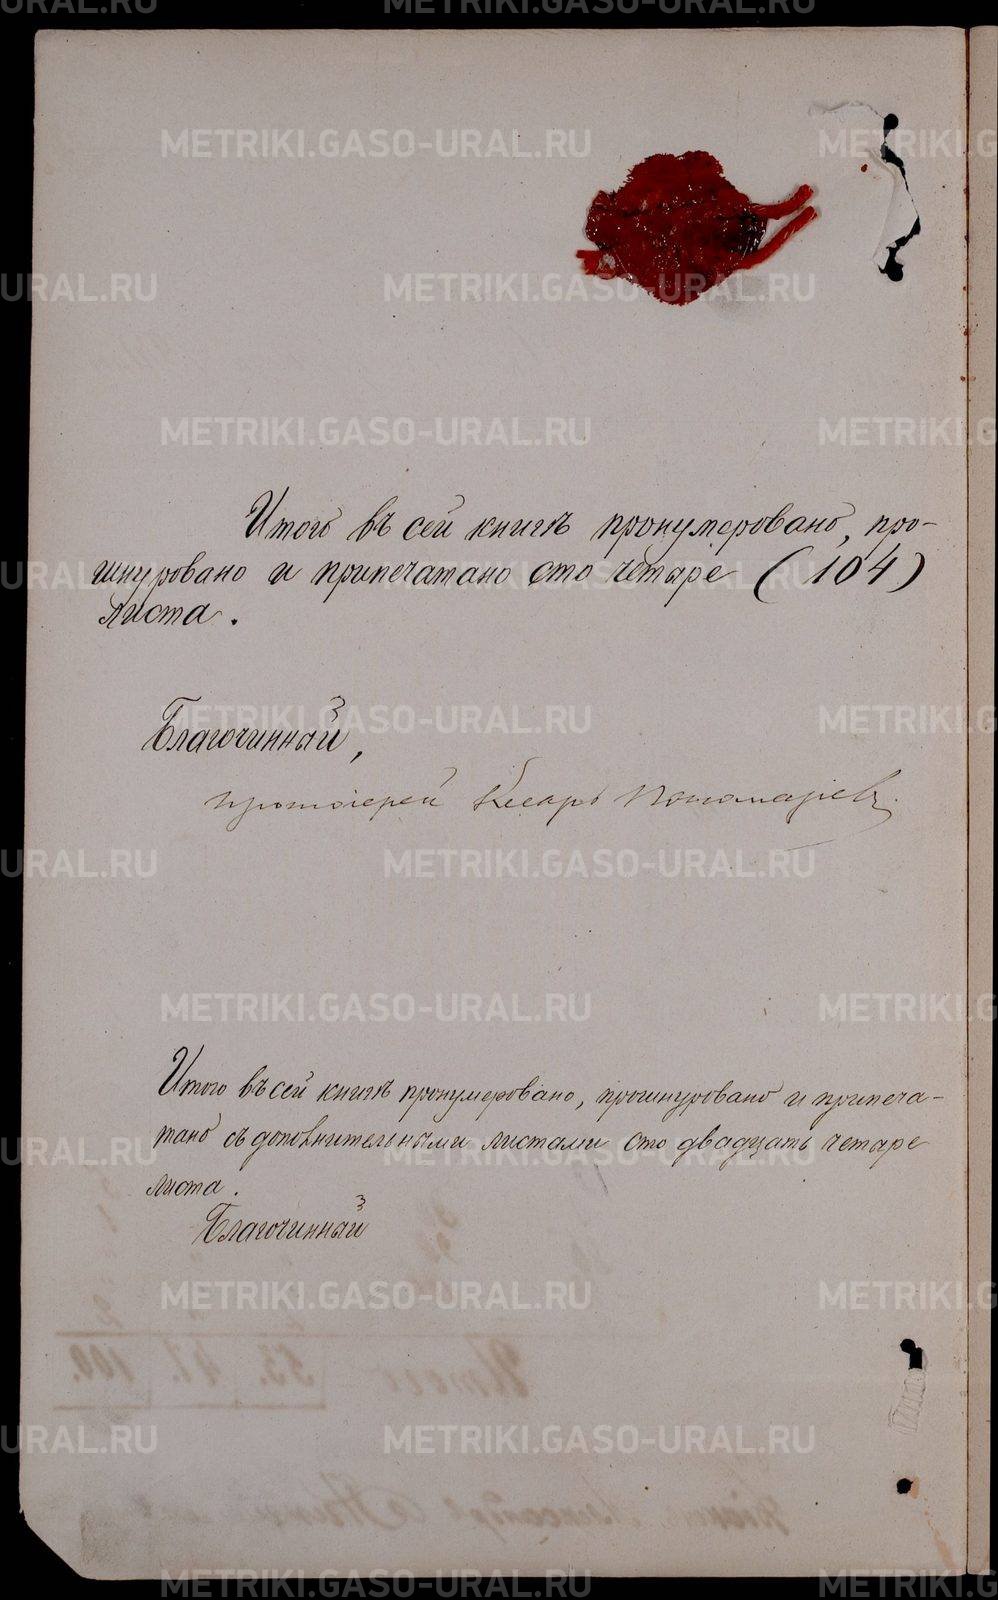 Итого въ сей книгѣ пронумеровано, про-
шнуровано и припечатано сто четыре (104)
листа.
Благочинный,
протоіерей Кесарь Пономаревъ.
Итого въ сей книгѣ пронумеровано, прошнуровано и припеча-
тано съ дополнительными листами сто двадцать четыре
листа.
Благочинный
METRIKI.GASO-URAL.RU